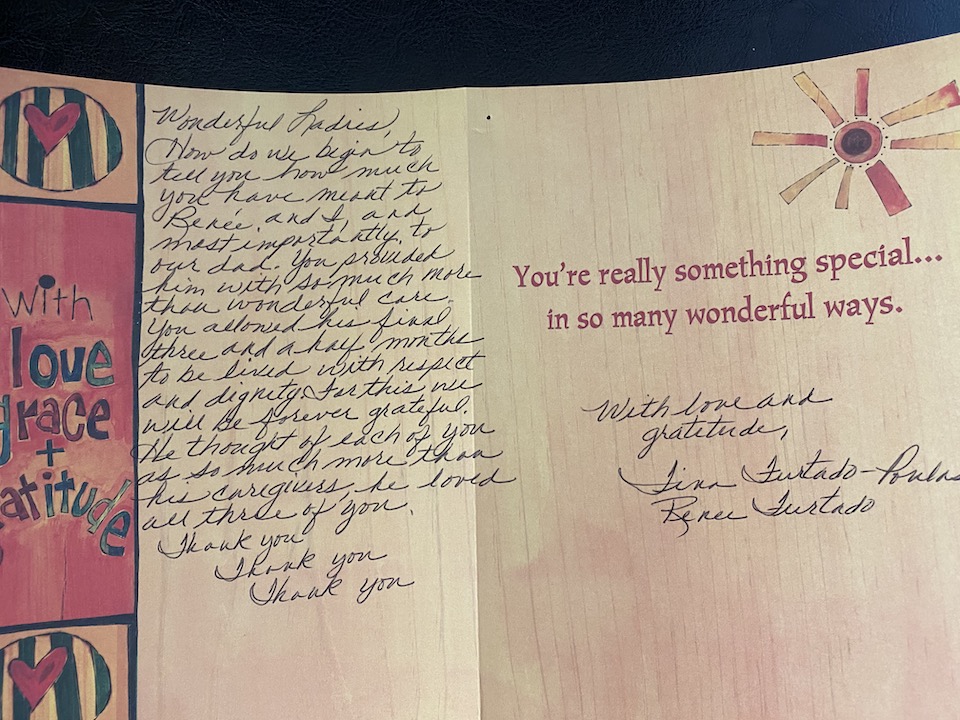 With
love
grace
+
gratitude
Wonderful Ladies,
How do we begin to
tell you how much
you have meant to
Renée and I, and
most importantly, to
our dad. You provided
him with so much more
than wonderful care.
You allowed his final
three and a half months
to be lived with respect
and dignity. For this we
will be forever grateful.
He thought of each of you
as so much more than
his caregivers, he loved
all three of you.
Thank you
Thank you
Thank you
You're really something special...
in so many wonderful ways.
With love and
gratitude,
Tina Furtado-Poulos
Renee Furtado